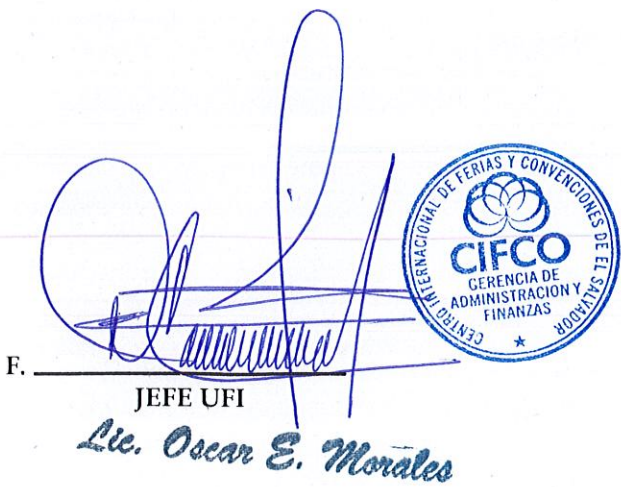 CENTRO INTERNACIONAL DE FERIAS Y CONVENCIONES DE EL SALVADOR
CIFCO
GERENCIA DE
ADMINISTRACION Y
FINANZAS
★
F.
JEFE UFI
Lic. Oscar E. Morales